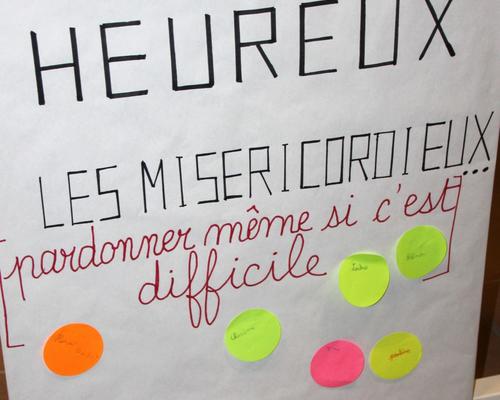 HEUREUX
LES MISERICORDIEUX...
[pardonner même si c'est
difficile]